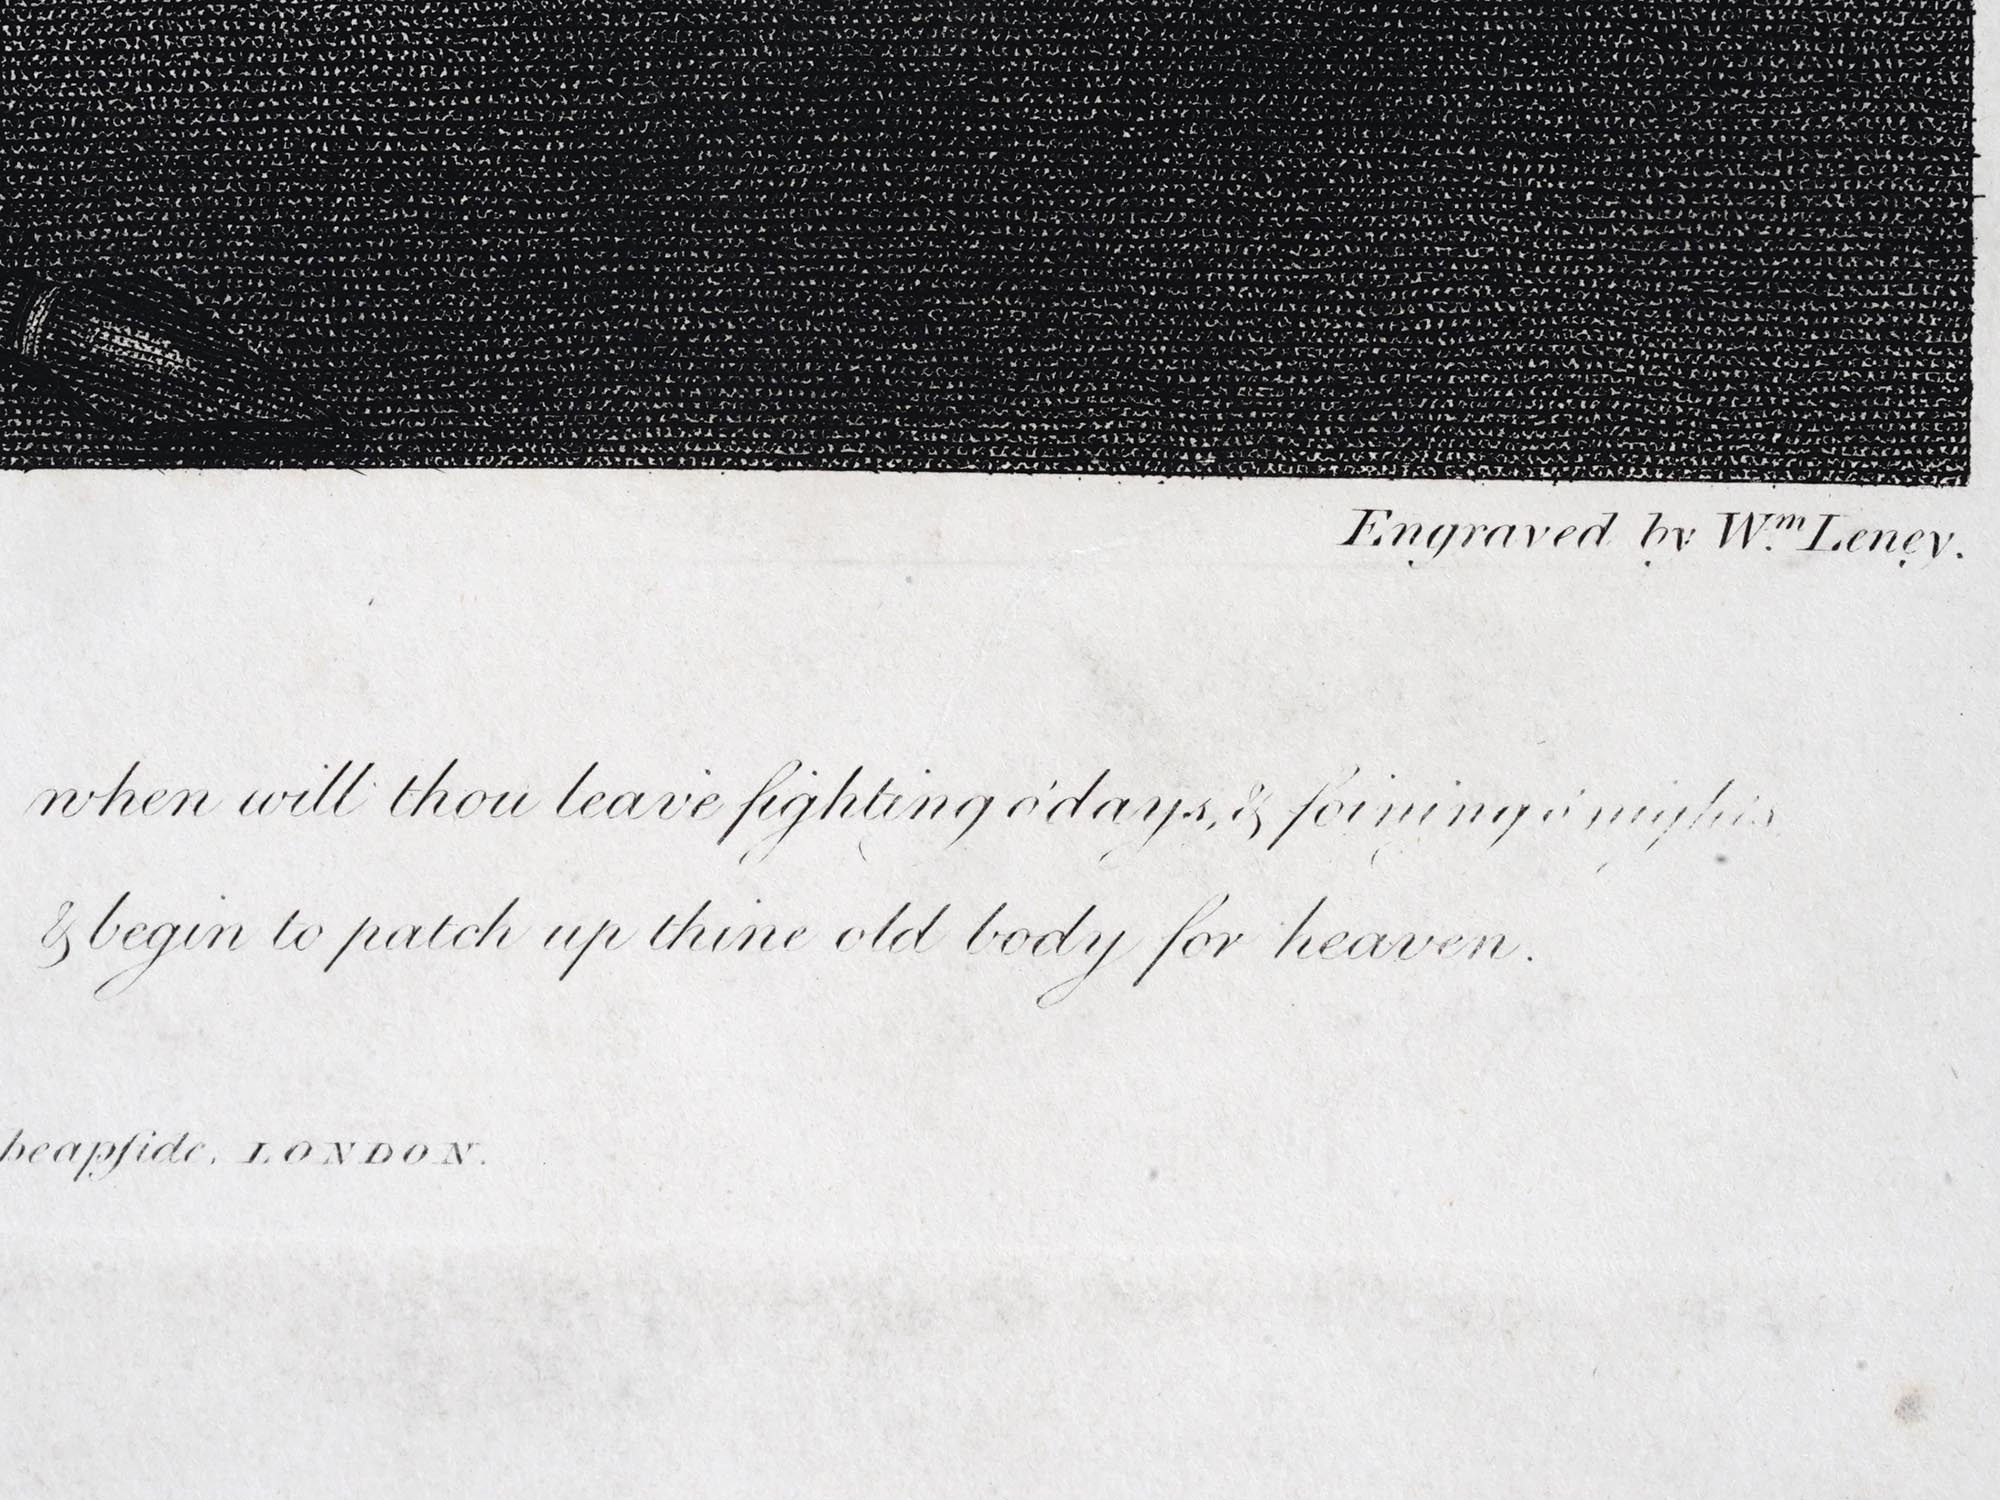 Engraved by Wm. Leney.
when will thou leave fighting o'days, & foining o' nights
& begin to patch up thine old body for heaven.
heapſide. LONDON.